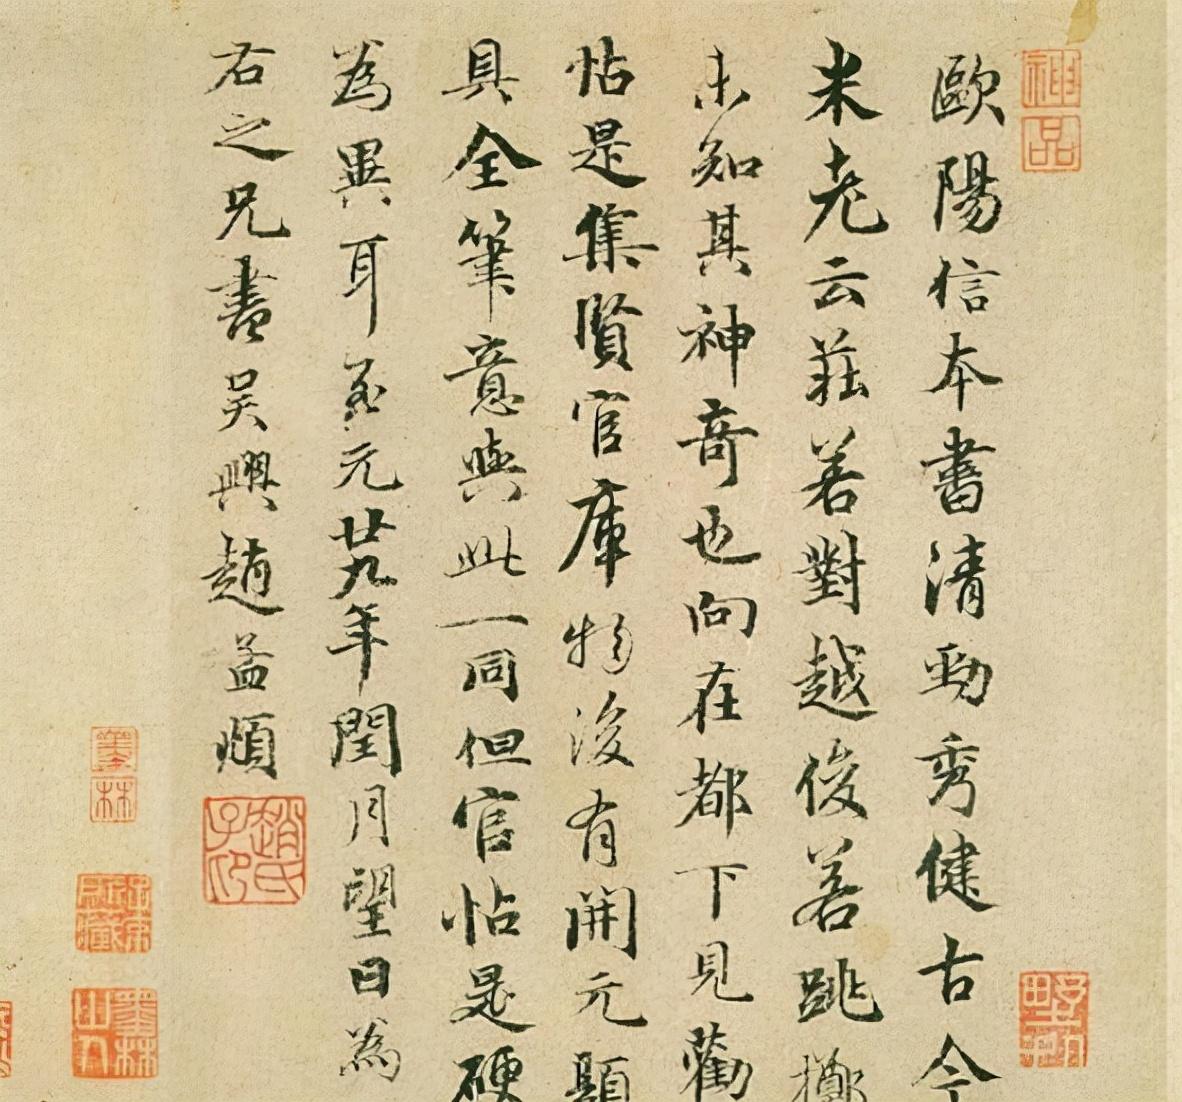 神品
歐陽信本書清勁秀健古今
米老云莊若對越俊若跳擲
未知其神奇也向在都下見勸
帖是集賢官庫物後有開元題
具全筆意與此一同但官帖是硬
為異耳至元廿九年閏月望日為
右之兄書吳興趙孟頫
趙氏子昂
墨林
墨林山人